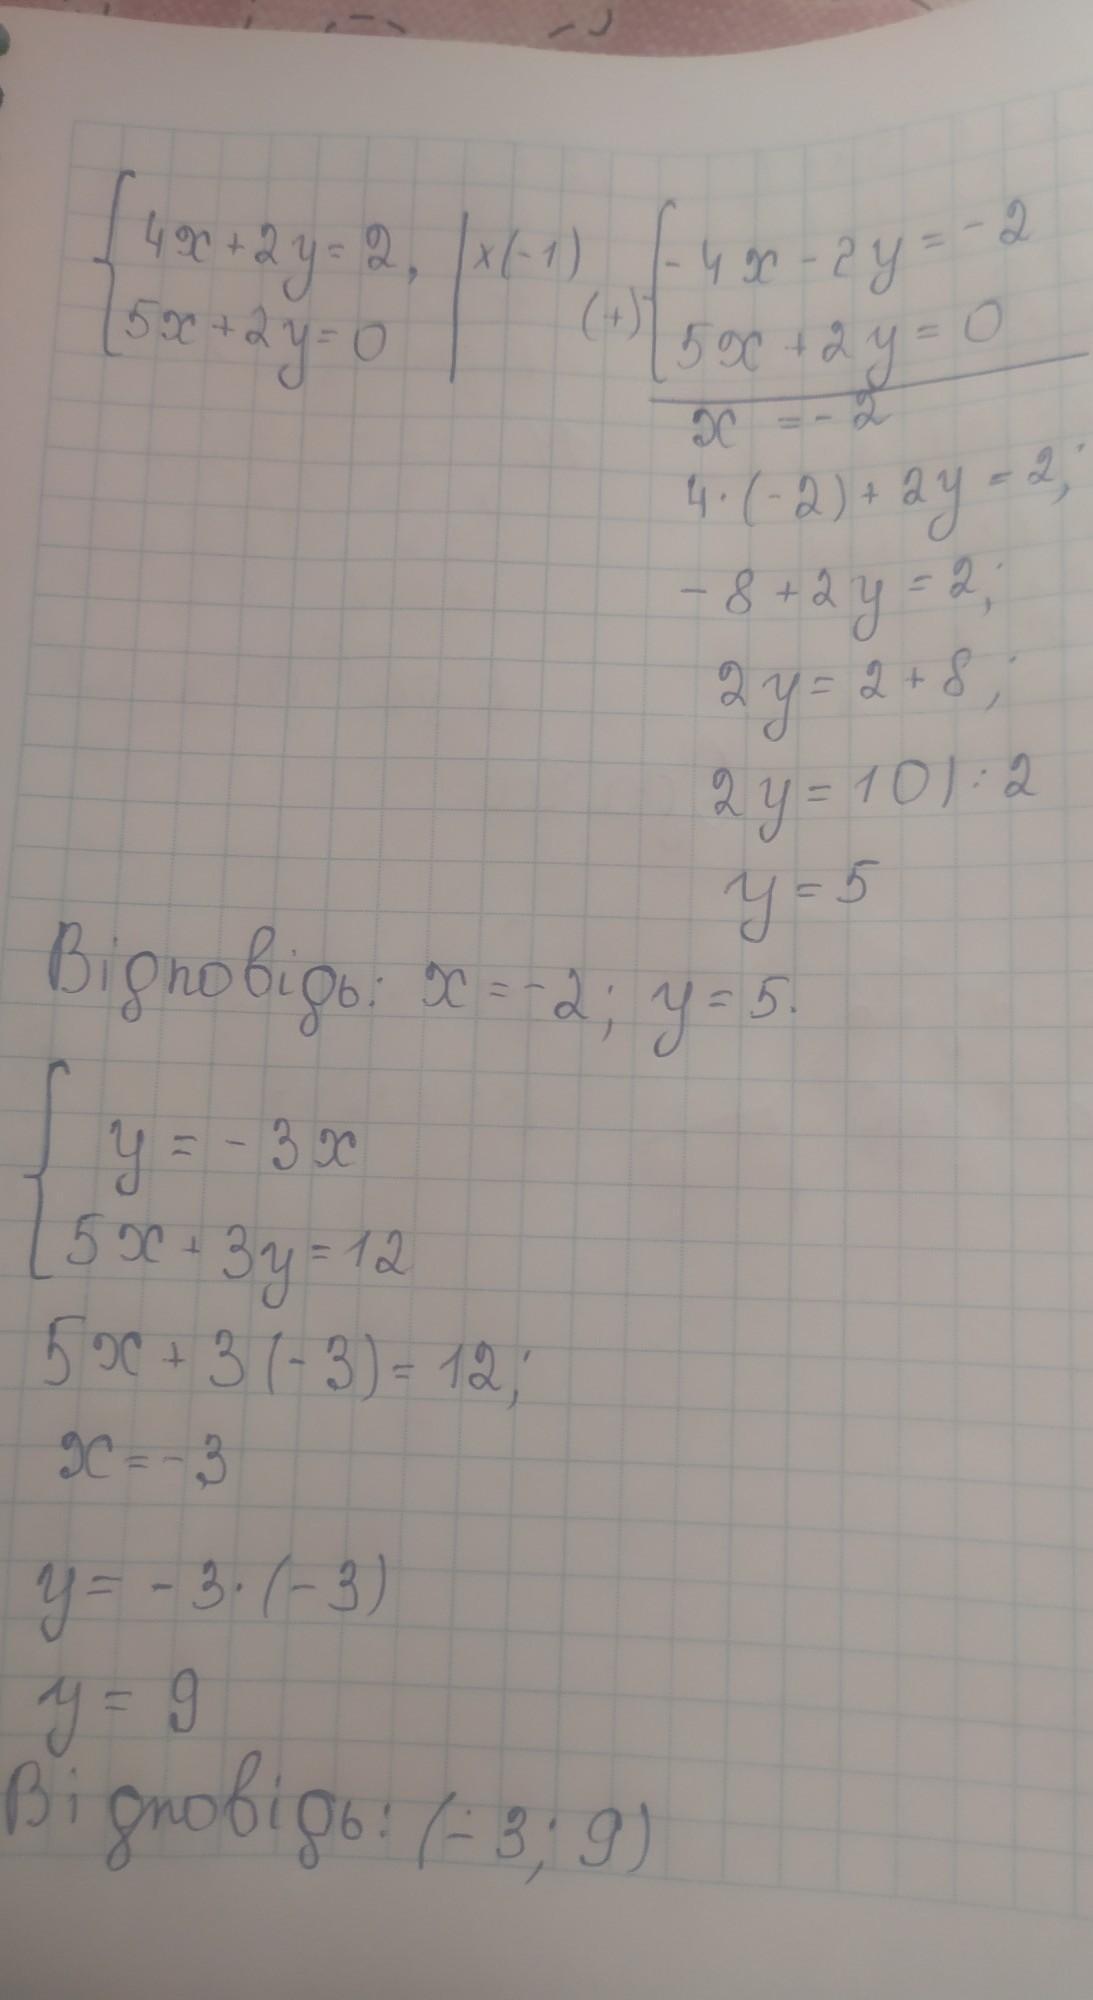 4x + 2y = 2, | ×(-1)
5x + 2y = 0
(+)
-4x - 2y = -2
5x + 2y = 0
x = -2
4·(-2) + 2y = 2;
-8 + 2y = 2;
2y = 2 + 8;
2y = 10 | : 2
y = 5
Відповідь: x = -2; y = 5.
y = -3x
5x + 3y = 12
5x + 3(-3) = 12;
x = -3
y = -3·(-3)
y = 9
Відповідь: (-3; 9)